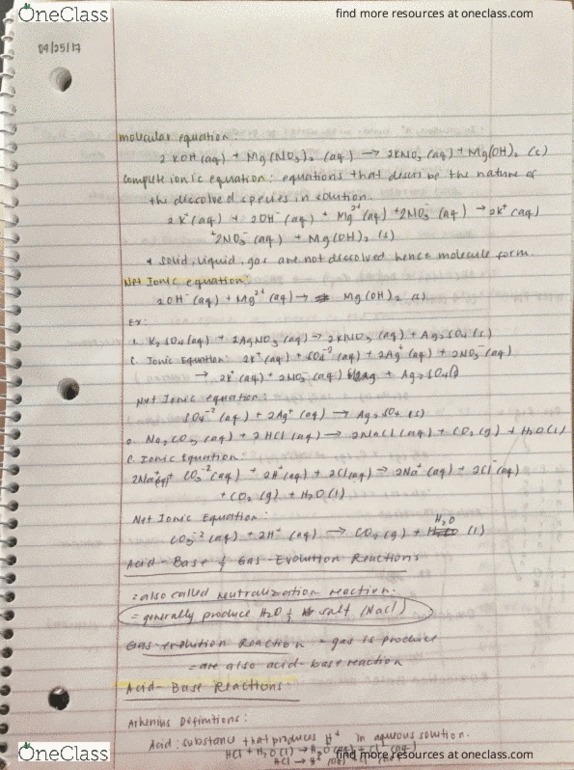 OneClass
find more resources at oneclass.com
04/25/17
molecular equation:
2 KOH (aq) + Mg(NO3)2 (aq) → 2KNO3 (aq) + Mg(OH)2 (s)
complete ionic equation: equations that describe the nature of
the dissolved species in solution.
2 K+ (aq) + 2OH- (aq) + Mg2+ (aq) + 2NO3- (aq) → 2K+ (aq)
+ 2NO3- (aq) + Mg(OH)2 (s)
* solid, liquid, gas are not dissolved hence molecule form.
Net Ionic equation:
2OH- (aq) + Mg2+ (aq) → Mg(OH)2 (s)
Ex:
1. K2SO4 (aq) + 2AgNO3 (aq) → 2KNO3 (aq) + Ag2SO4 (s)
C. Ionic Equation: 2K+ (aq) + SO4-2 (aq) + 2Ag+ (aq) + 2NO3- (aq)
→ 2K+ (aq) + 2NO3- (aq) + Ag2SO4(s)
Net Ionic equation:
SO4-2 (aq) + 2Ag+ (aq) → Ag2SO4 (s)
Na2CO3 (aq) + 2HCl (aq) → 2NaCl (aq) + CO2 (g) + H2O (l)
C. Ionic Equation:
2Na+ (aq) + CO3-2 (aq) + 2H+ (aq) + 2Cl (aq) → 2Na+ (aq) + 2Cl- (aq)
+ CO2 (g) + H2O (l)
Net Ionic Equation:
CO3-2 (aq) + 2H+ (aq) → CO2 (g) + H2O (l)
Acid-Base & Gas-Evolution Reactions
= also called neutralization reaction.
= generally produce H2O & salt (NaCl)
Gas-evolution Reaction = gas is produce
= are also acid-base reaction
Acid-Base Reactions:
Arrhenius Definitions:
Acid: substance that produces H+ in aqueous solution.
HCl + H2O (l) →
HCl →
OneClass
find more resources at oneclass.com